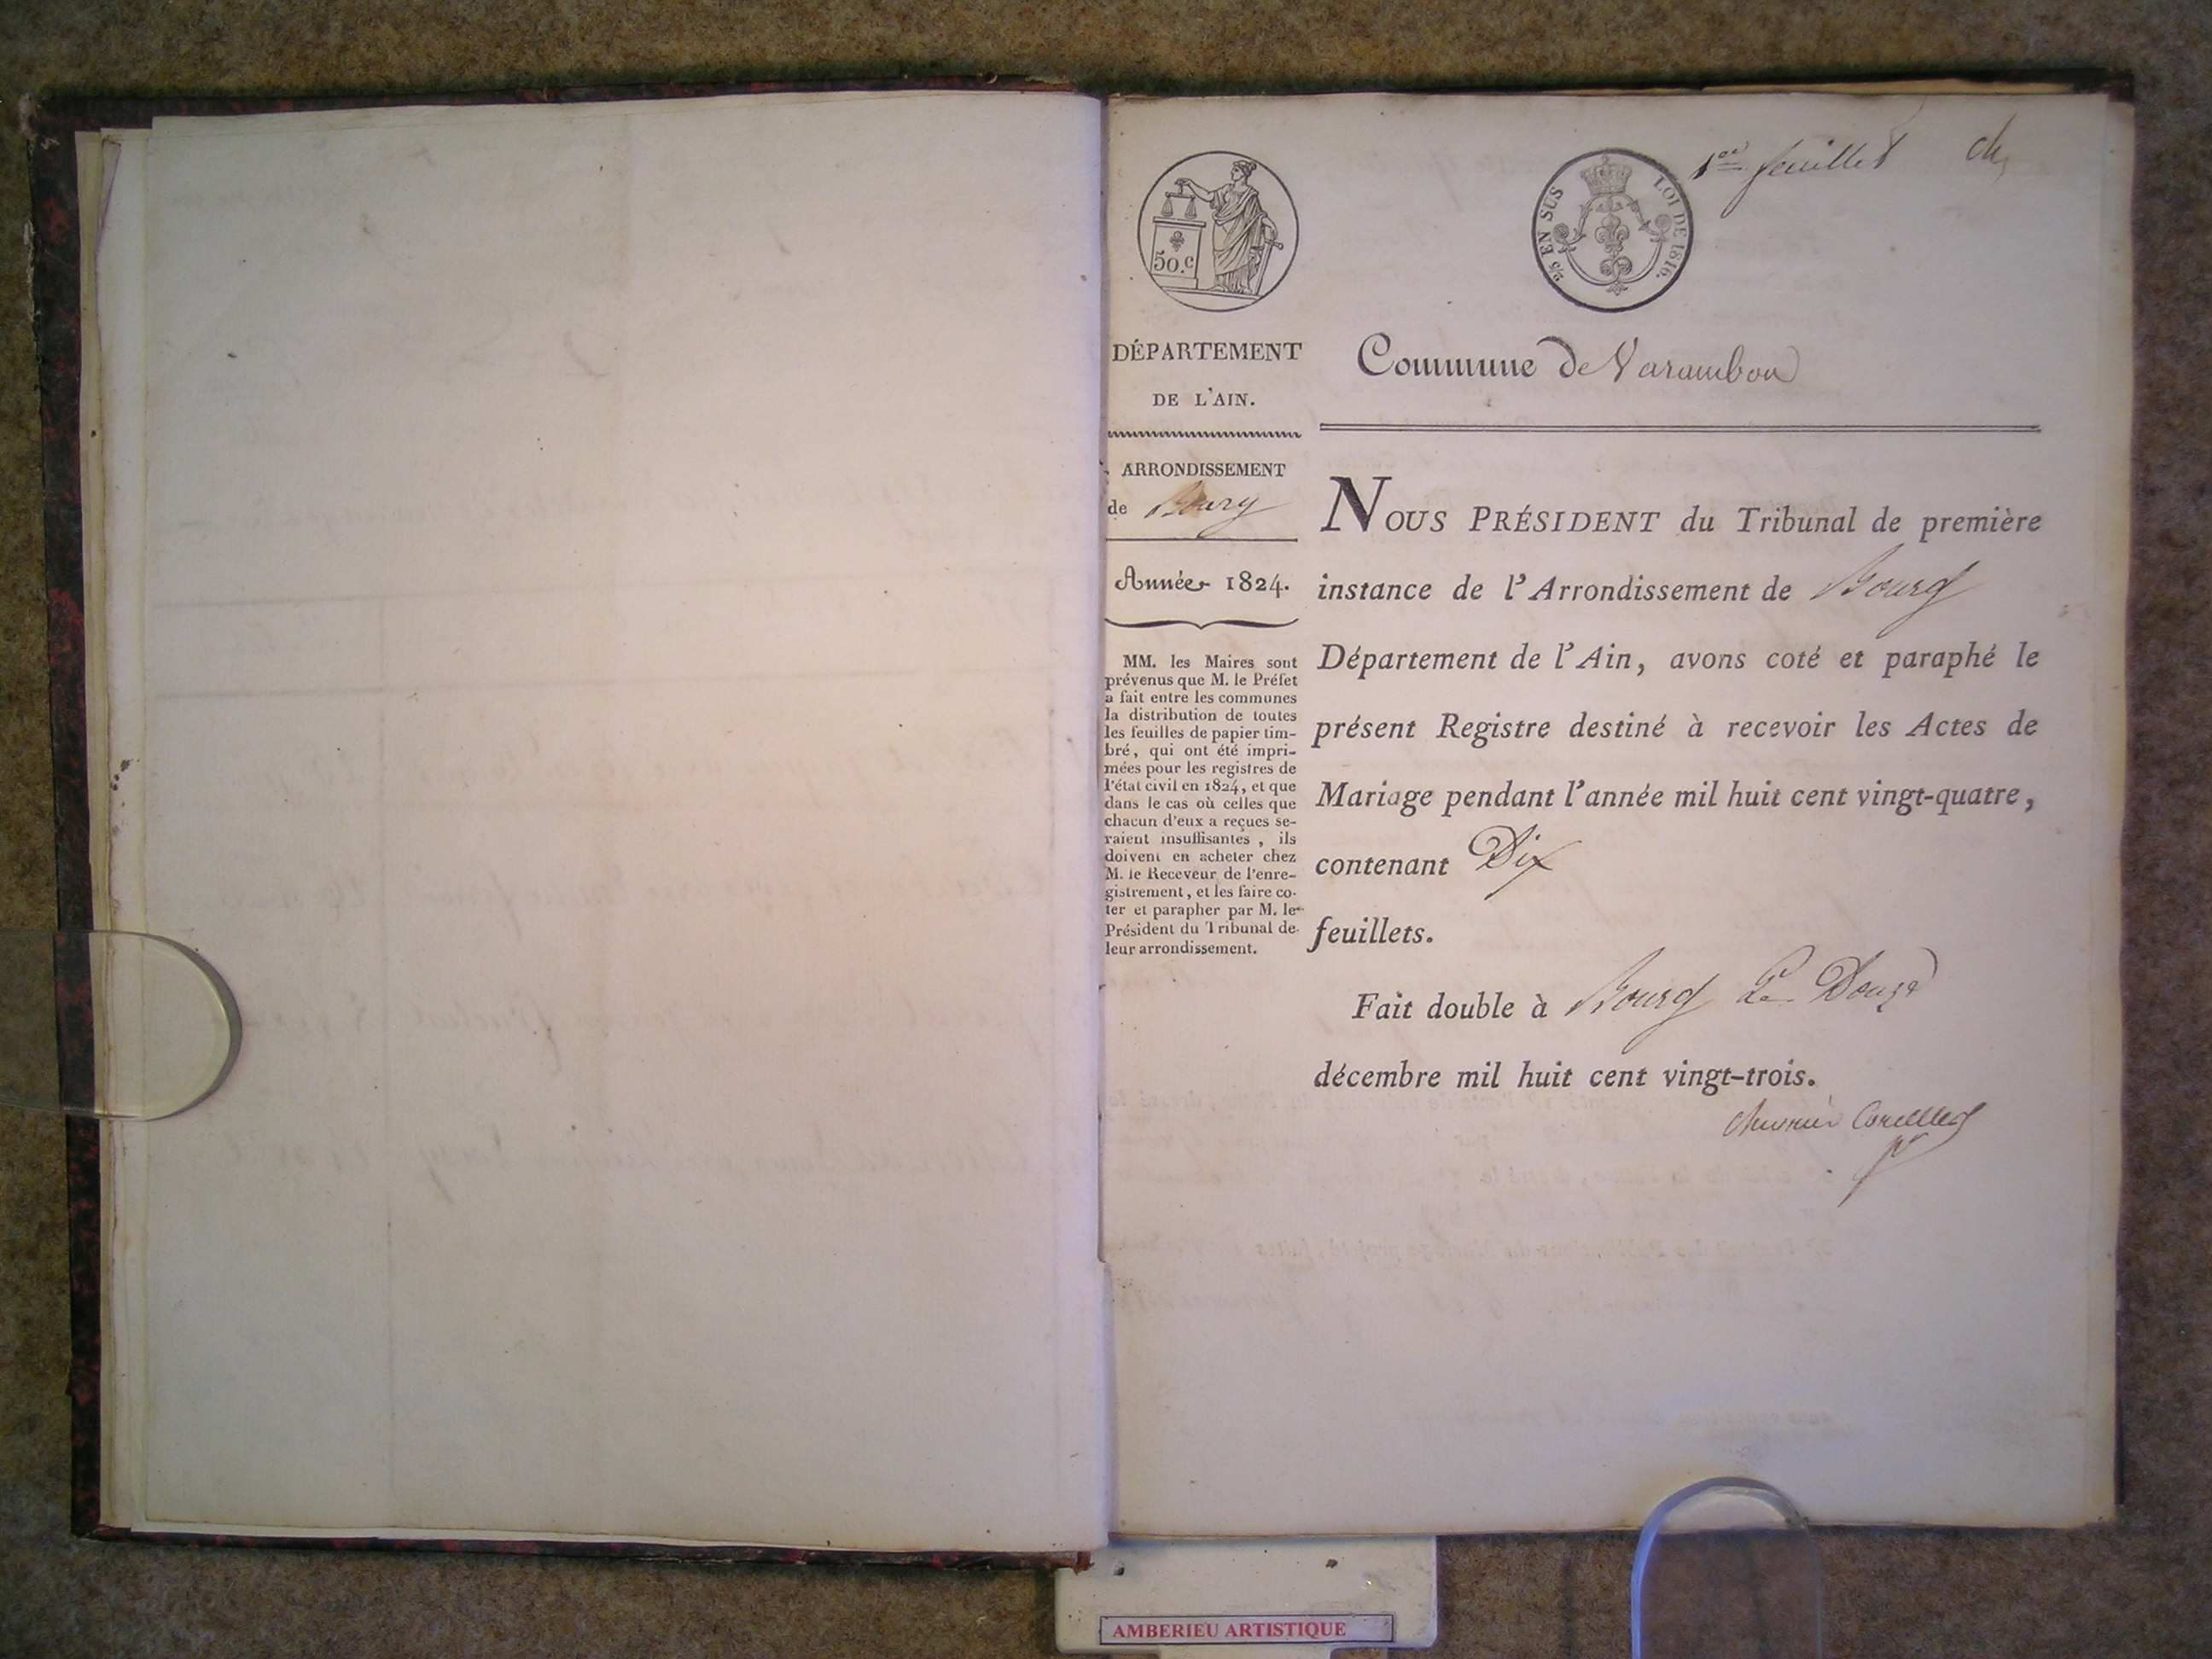 1er feuillet
50.c
2/5 EN SUS
LOI DE 1816.
DÉPARTEMENT
DE L'AIN.
ARRONDISSEMENT
de Bourg
Année 1824.
MM. les Maires sont
prévenus que M. le Préfet
a fait entre les communes
la distribution de toutes
les feuilles de papier tim-
bré, qui ont été impri-
mées pour les registres de
l'état civil en 1824, et que
dans le cas où celles que
chacun d'eux a reçues se-
raient insuffisantes, ils
doivent en acheter chez
M. le Receveur de l'enre-
gistrement, et les faire co-
ter et parapher par M. le
Président du Tribunal de
leur arrondissement.
Commune de Varambon
NOUS PRÉSIDENT du Tribunal de première
instance de l'Arrondissement de Bourg
Département de l'Ain, avons coté et paraphé le
présent Registre destiné à recevoir les Actes de
Mariage pendant l'année mil huit cent vingt-quatre,
contenant Dix
feuillets.
Fait double à Bourg Le Douze
décembre mil huit cent vingt-trois.
AMBERIEU ARTISTIQUE